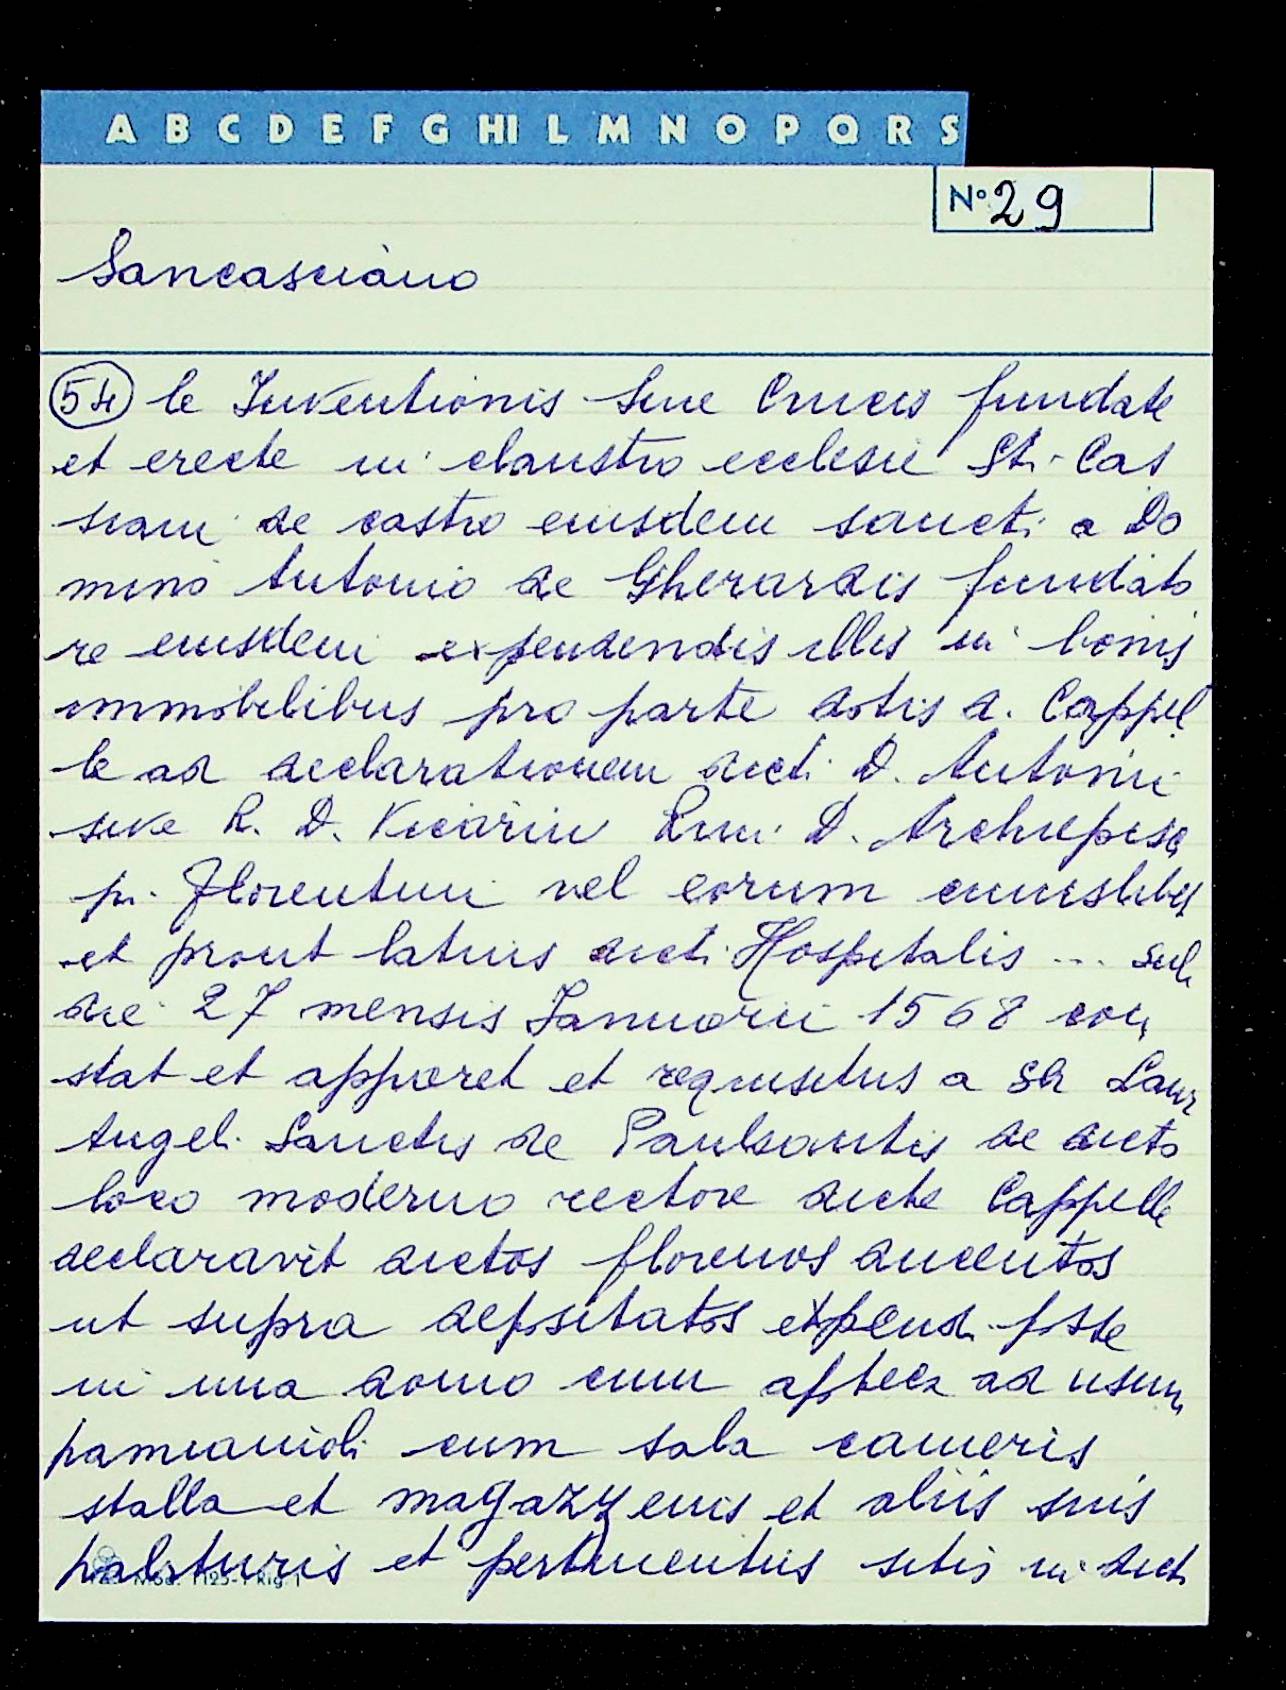 A B C D E F G HI L M N O P Q R S
N° 29
Sancasciano
54 le Inventionis Sme Crucis fundate
et erecte in claustro ecclesie Sti Cas
siani de castro eiusdem sancti a Do
mino Antonio de Gherardis fundato
re eiusdem expendendis illis in bonis
immobilibus pro parte dotis d. Cappel
le ad declarationem dicti D. Antonii
sive R. D. Vicarii Rmi D. Archiepisco
pi Florentini vel eorum cuiuslibet
et prout latius dicti Hospitalis ... sub
die 27 mensis Januarii 1568 con
stat et apparet et requisitus a SR Laur
Angeli Sanctis de Paulsantis de dicto
loco moderno rectore dicte Cappelle
declaravit dictos florenos ducentos
ut supra depositatos expendi posse
in una domo cum apoteca ad usum
pannaioli cum sala cameris
stalla et magazzenis et aliis suis
habituris et pertinentiis sitis in dicti
Mod. 1125-1 Rig. 1